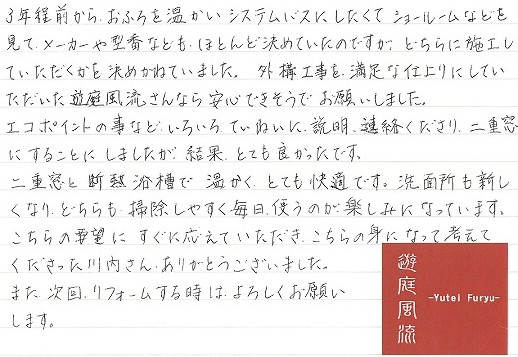 3年程前から、おふろを温かいシステムバスにしたくてショールームなどを
見て、メーカーや型番なども、ほとんど決めていたのですが、どちらに施工し
ていただくかを決めかねていました。外構工事を、満足な仕上りにしてい
ただいた遊庭風流さんなら安心できそうでお願いしました。
エコポイントの事など、いろいろ、ていねいに、説明、連絡くださり、二重窓
にすることにしましたが、結果、とても良かったです。
二重窓と断熱浴槽で温かく、とても快適です。洗面所も新し
くなり、どちらも、掃除しやすく毎日、使うのが楽しみになっています。
こちらの要望にすぐに応えていただき、こちらの身になって考えて
くださった川内さん、ありがとうございました。
また、次回、リフォームする時は、よろしくお願い
します。
遊庭風流
-Yutei Furyu-